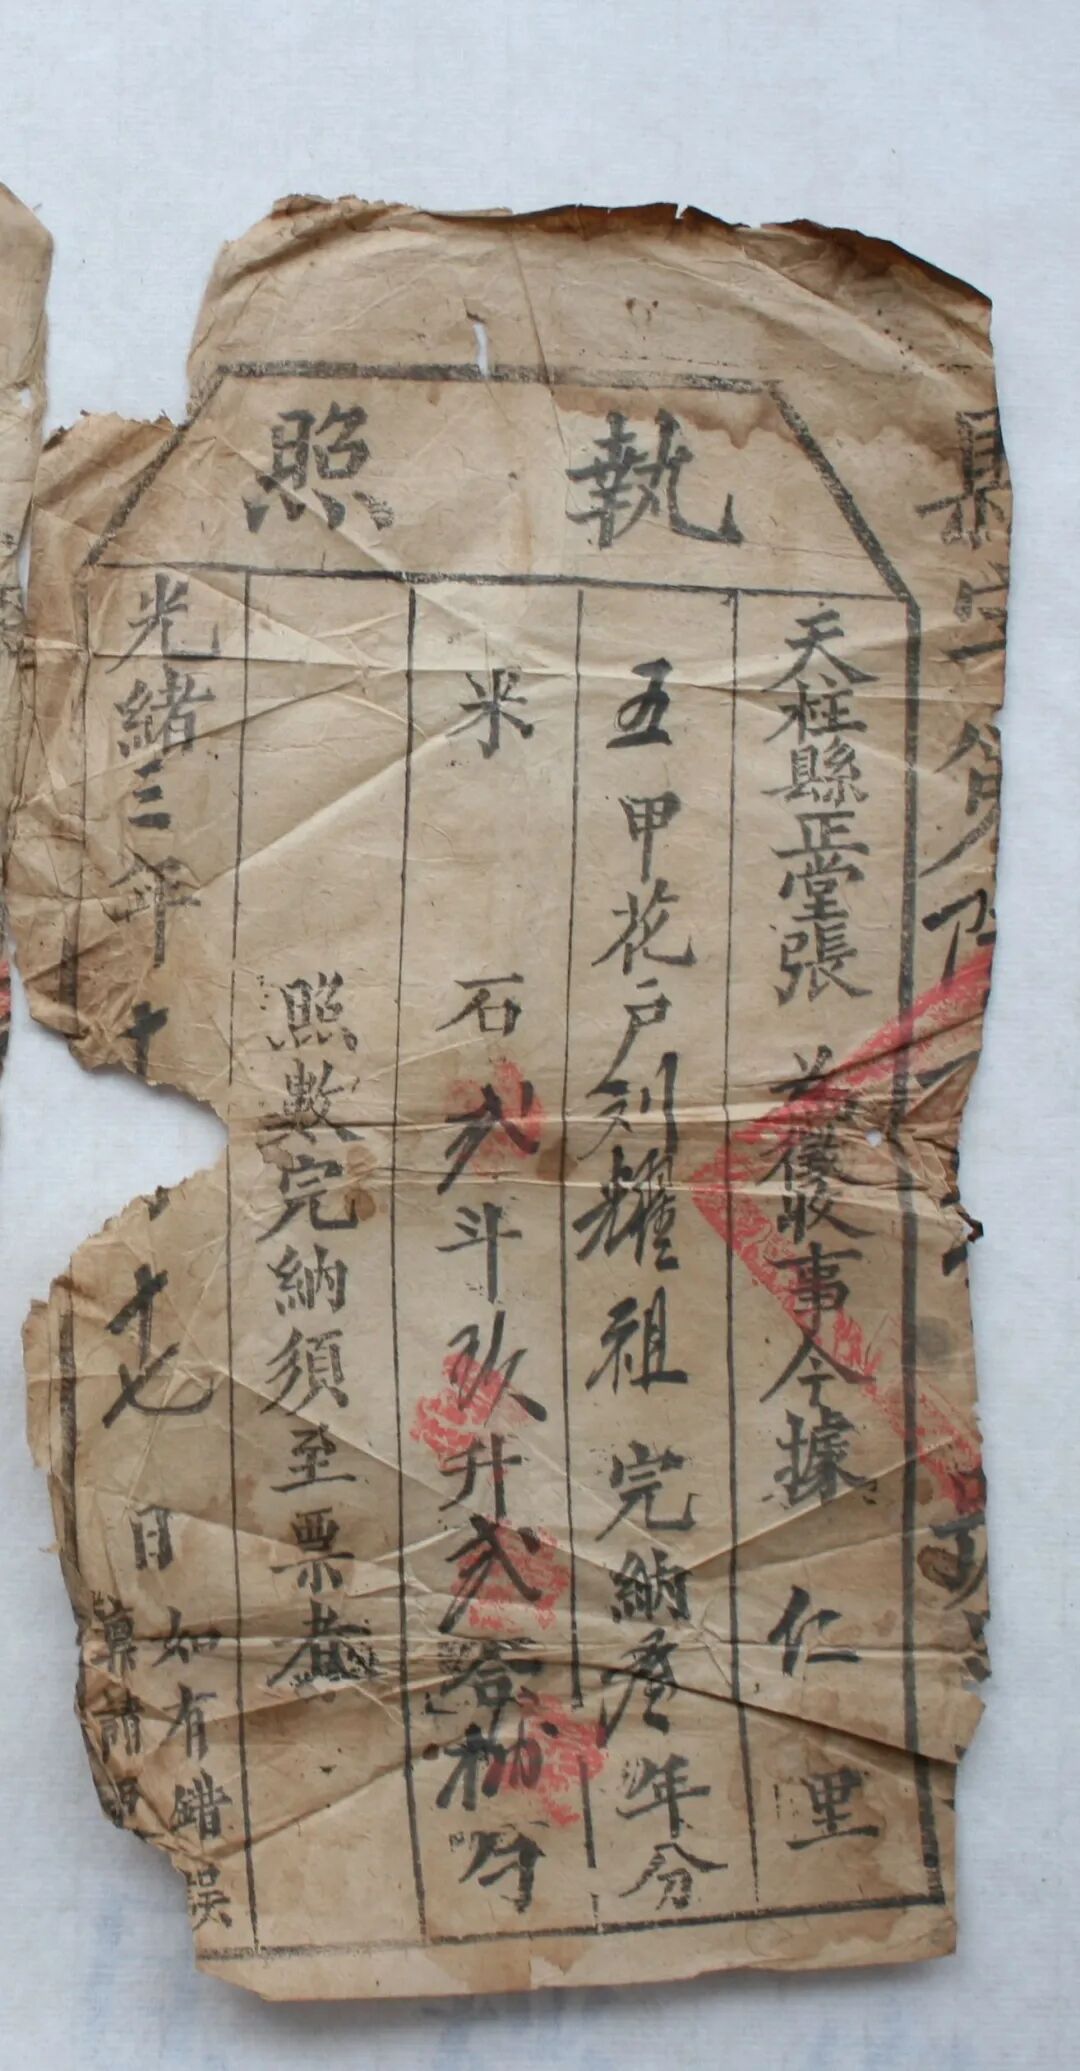 執照
天柱縣正堂張 為徵收事今據 仁 里
五甲花户刘耀祖 完納叁年分
米 石弍斗玖升弍合捌勺
照數完納須至票者
光緒三年十 十七日
如有錯誤
稟請